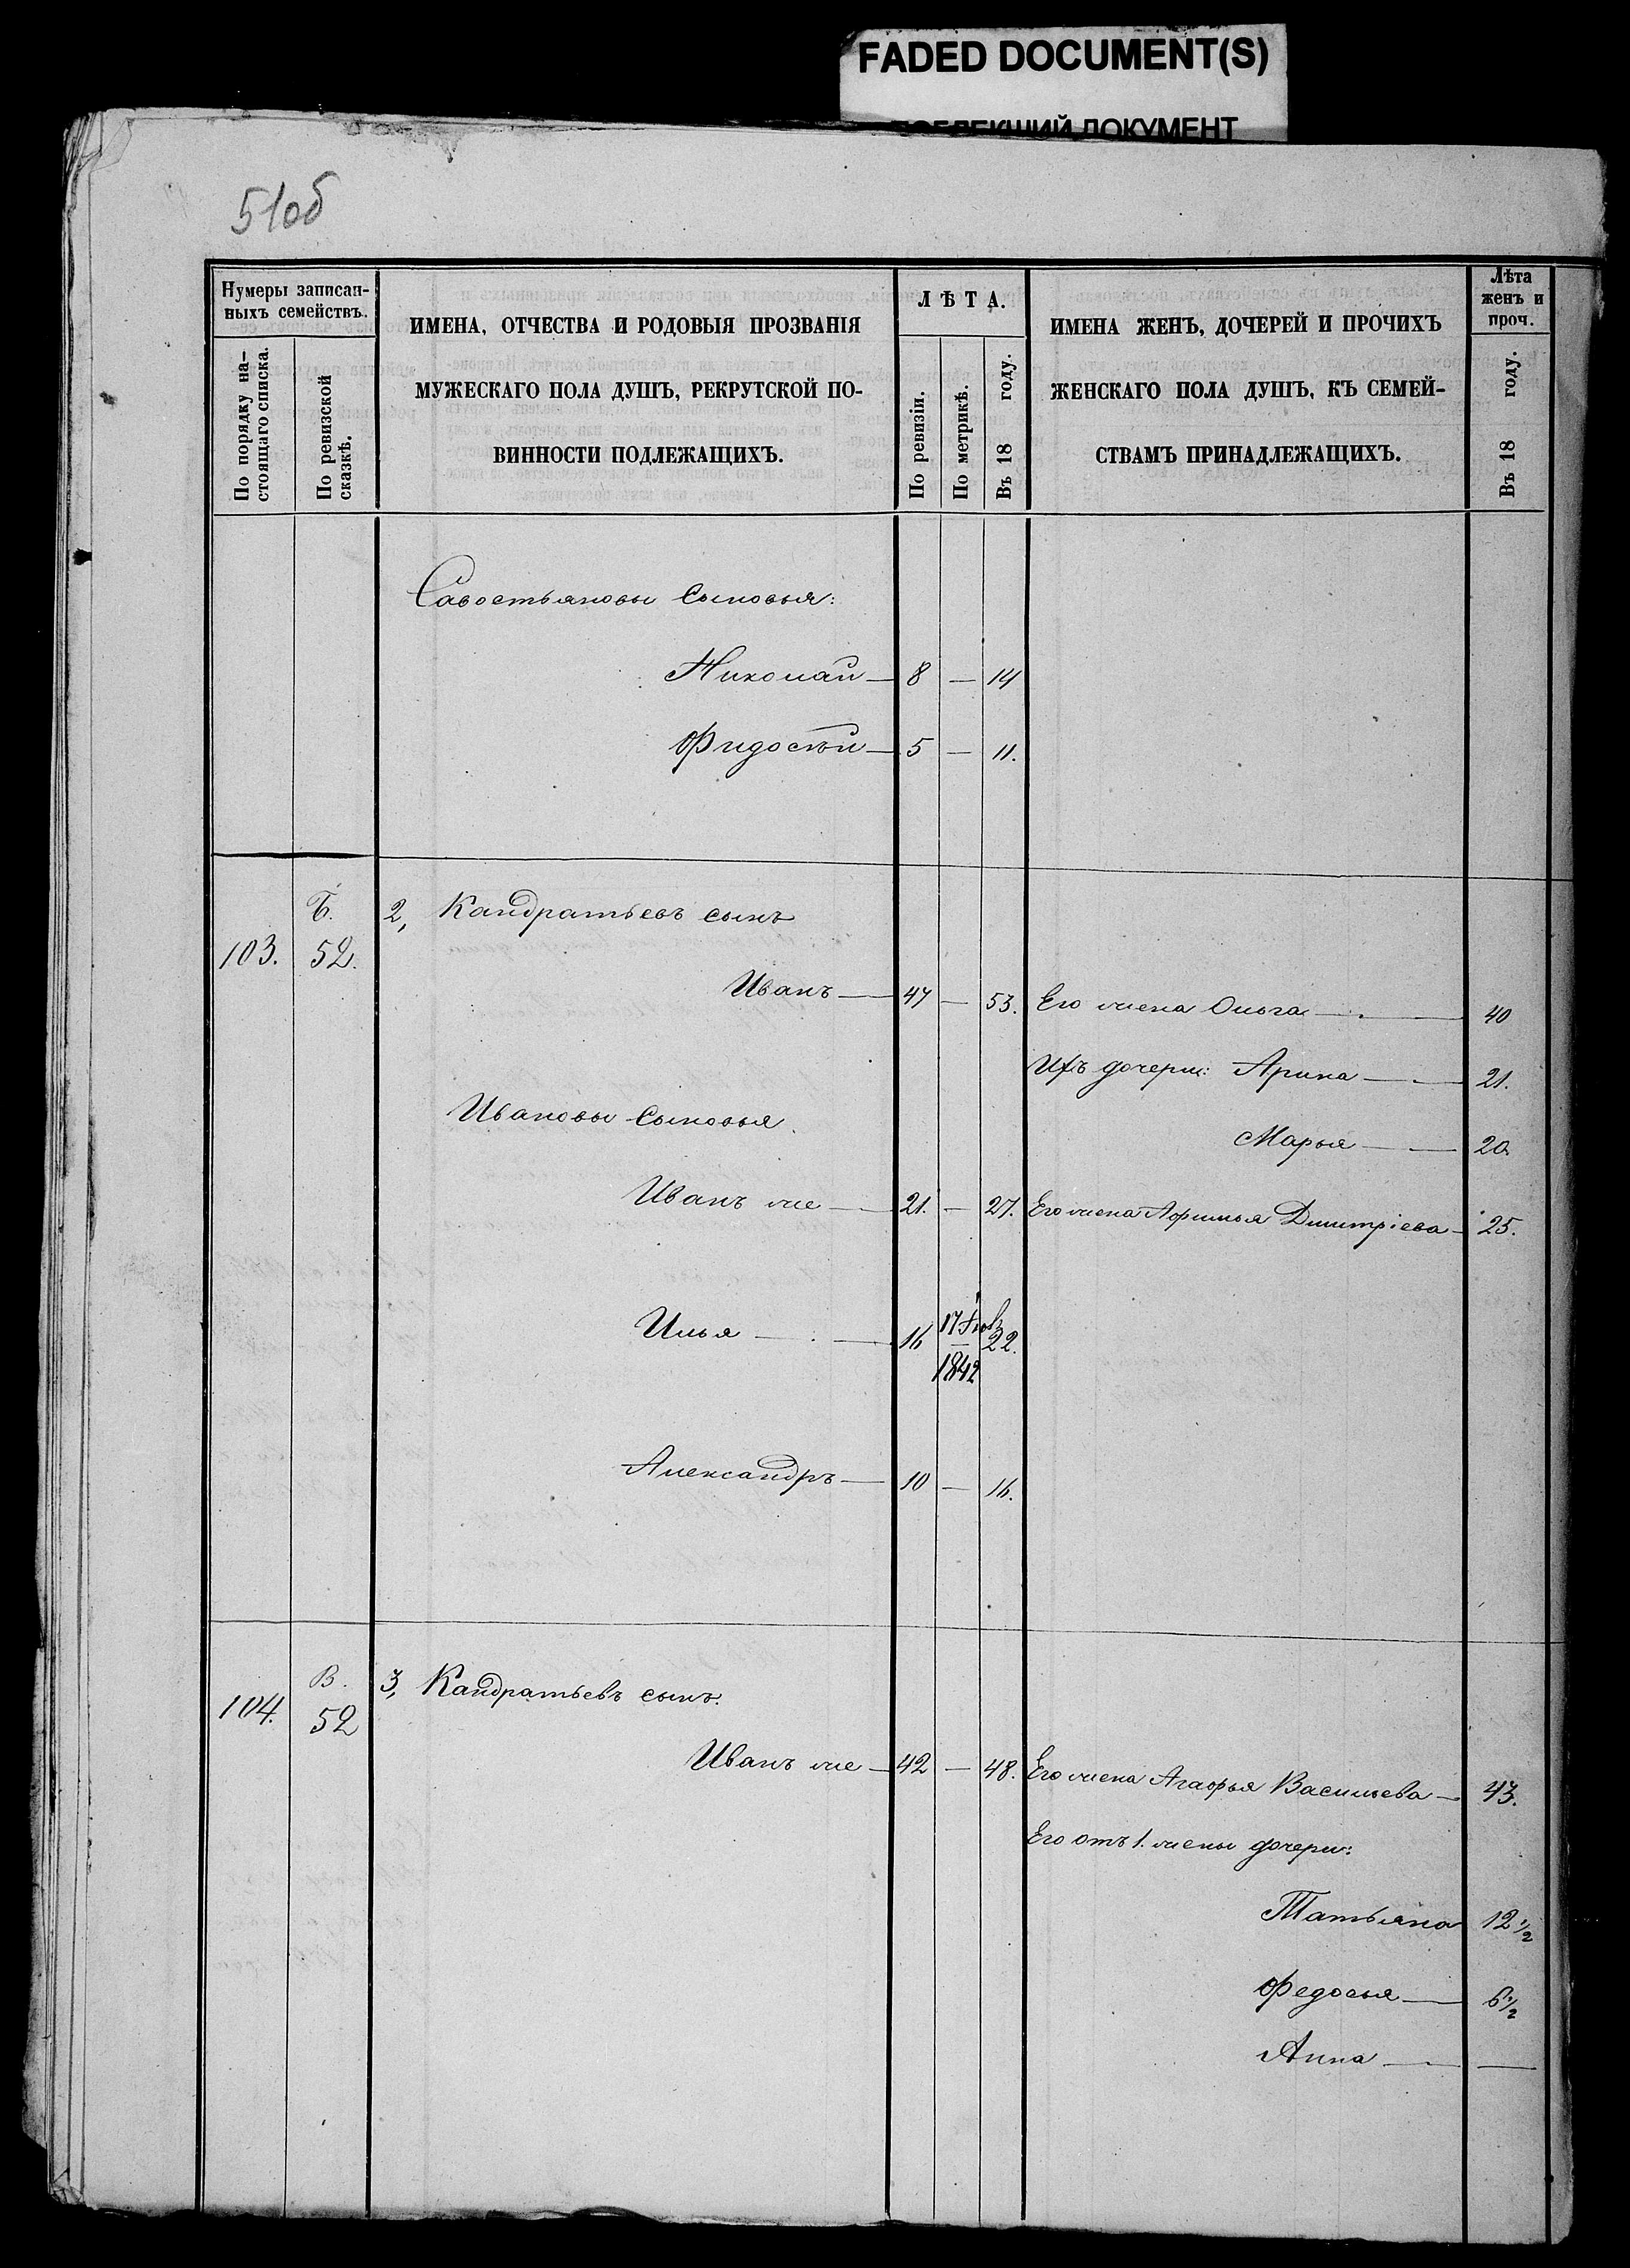 FADED DOCUMENT(S)
ДОКУМЕНТ
51об
Нумеры записан-
ныхъ семействъ.
По порядку на-
стоящаго списка.
По ревизской
сказкѣ.
ИМЕНА, ОТЧЕСТВА И РОДОВЫЯ ПРОЗВАНІЯ
МУЖЕСКАГО ПОЛА ДУШЪ, РЕКРУТСКОЙ ПО-
ВИННОСТИ ПОДЛЕЖАЩИХЪ.
ЛѢТА.
По ревизіи.
По метрикѣ.
Въ 18 году.
ИМЕНА ЖЕНЪ, ДОЧЕРЕЙ И ПРОЧИХЪ
ЖЕНСКАГО ПОЛА ДУШЪ, КЪ СЕМЕЙ-
СТВАМЪ ПРИНАДЛЕЖАЩИХЪ.
Лѣта
женъ и
проч.
Въ 18 году.
Савостьяновы сыновья:
Николай — 8 — 14
Фидосѣй — 5 — 11.
103. Б. 52. 2, Кандратьевъ сынъ
Иванъ — 47 — 53. Его жена Ольга — 40
Ихъ дочери: Арина — 21.
Ивановы сыновья.
Марья — 20.
Иванъ же — 21. — 27. Его жена Афимья Димитріева — 25.
Илья — 16 17 1842 22.
Александръ — 10 — 16.
104. В. 52 3, Кандратьевъ сынъ.
Иванъ же — 42 — 48. Его жена Агафья Васильева — 43.
Его отъ 1. жены дочери:
Татьяна 12 1/2
Федосья — 6 1/2
Анна — —